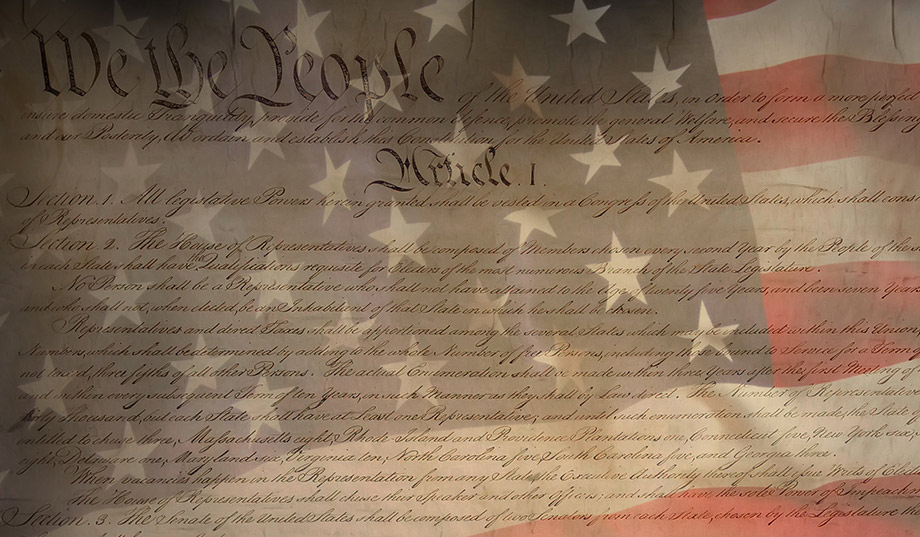 We the People of the United States, in Order to form a more perfect
insure domestic Tranquility, provide for the common defence, promote the general Welfare, and secure the Blessing
and our Posterity, do ordain and establish this Constitution for the United States of America.
Article. I.
Section. 1. All legislative Powers herein granted shall be vested in a Congress of the United States, which shall cons
of Representatives.
Section. 2. The House of Representatives shall be composed of Members chosen every second Year by the People of the s
in each State shall have the Qualifications requisite for Electors of the most numerous Branch of the State Legislature.
No Person shall be a Representative who shall not have attained to the Age of twenty five Years, and been seven Years
and who shall not, when elected, be an Inhabitant of that State in which he shall be chosen.
Representatives and direct Taxes shall be apportioned among the several States which may be included within this Union,
Numbers, which shall be determined by adding to the whole Number of free Persons, including those bound to Service for a Term of
not taxed, three fifths of all other Persons. The actual Enumeration shall be made within three Years after the first Meeting of
and within every subsequent Term of ten Years, in such Manner as they shall by Law direct. The Number of Representative
thirty Thousand, but each State shall have at Least one Representative; and until such enumeration shall be made, the State of
entitled to chuse three, Massachusetts eight, Rhode Island and Providence Plantations one, Connecticut five, New York six,
eight, Delaware one, Maryland six, Virginia ten, North Carolina five, South Carolina five, and Georgia three.
When vacancies happen in the Representation from any State, the Executive Authority thereof shall issue Writs of Elect
the House of Representatives shall chuse their Speaker and other Officers; and shall have the sole Power of Impeach
Section. 3. The Senate of the United States shall be composed of two Senators from each State, chosen by the Legislature the